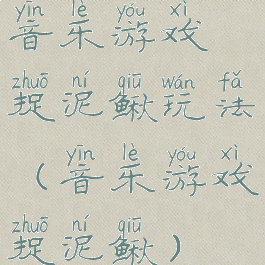 yīn lè yóu xì
音乐游戏
zhuō ní qiū wán fǎ
捉泥鳅玩法
yīn lè yóu xì
（音乐游戏
zhuō ní qiū
捉泥鳅）